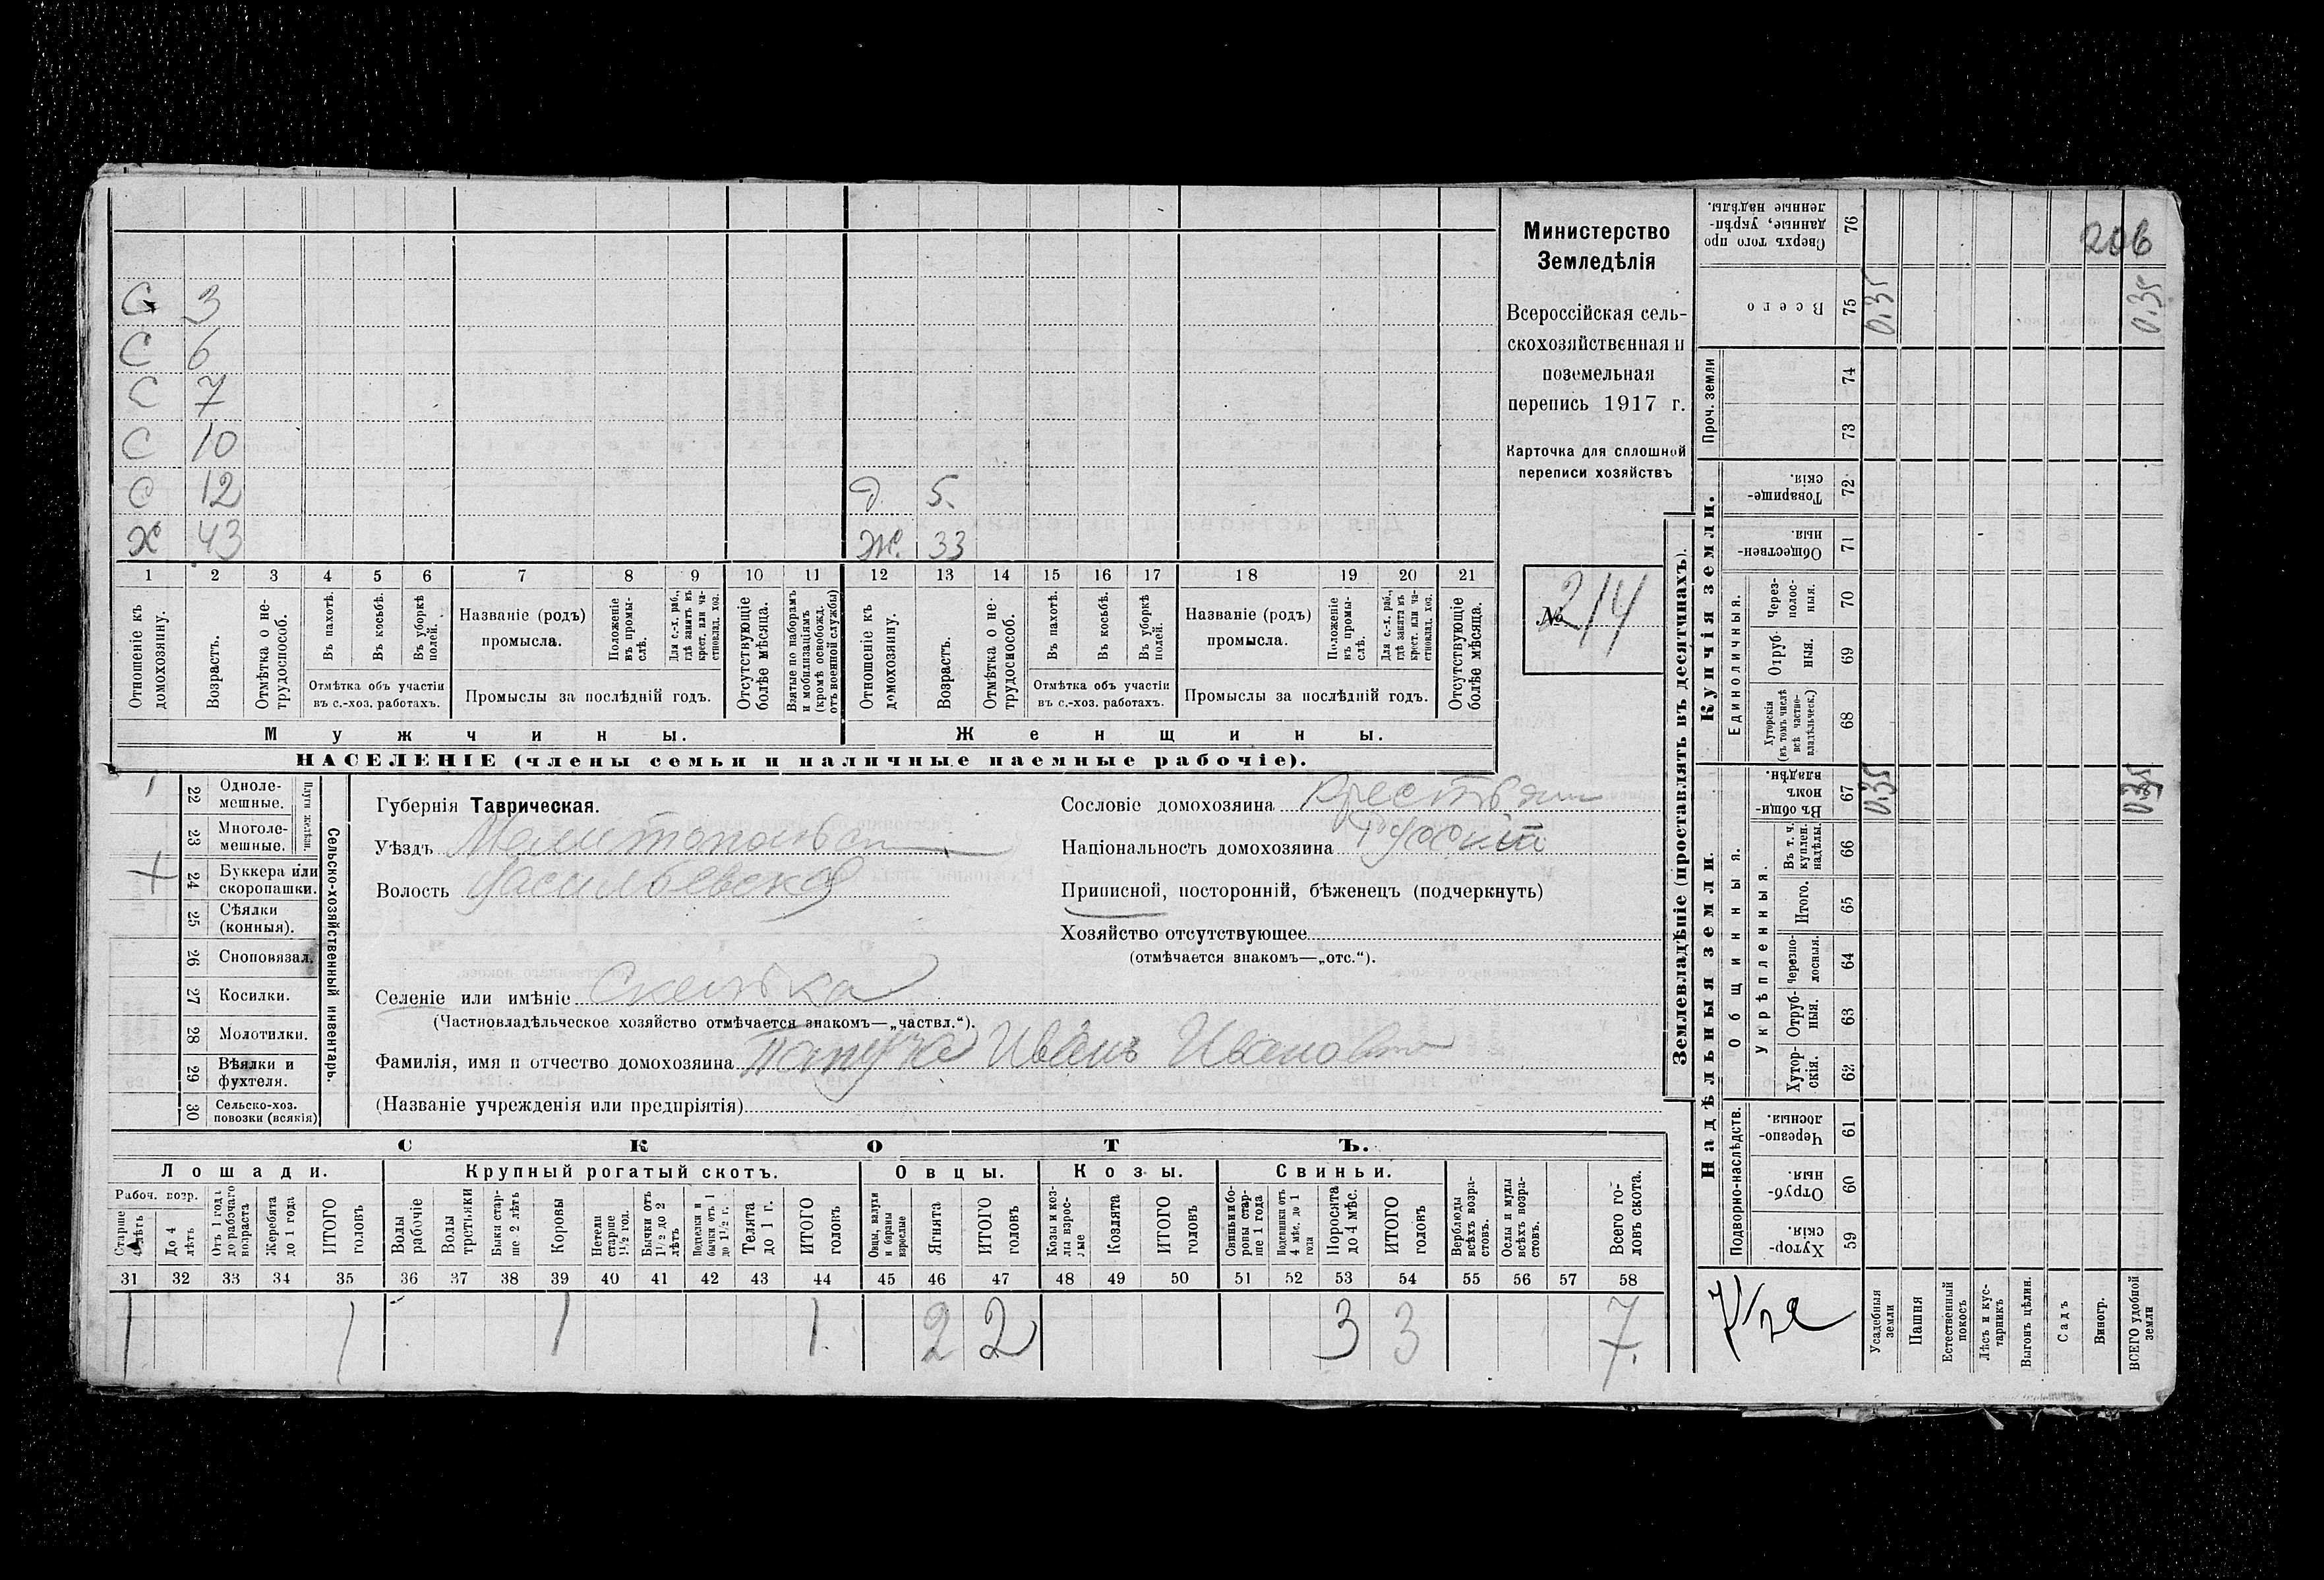 206
С 3
С 6
С 7
С 10
С 12 Д. 5.
Х 43 Ж. 33
1 2 3 4 5 6 7 8 9 10 11 12 13 14 15 16 17 18 19 20 21
Отношеніе къ домохозяину.
Возрастъ.
Отмѣтка о нетрудоспособ.
Въ пахотѣ.
Въ косьбѣ.
Въ уборкѣ полей.
Отмѣтка объ участіи
въ с.-хоз. работахъ.
Названіе (родъ)
промысла.
Положеніе въ промыслѣ.
Для с.-х. раб., гдѣ занятъ въ крест. или частновлад. хоз.
Промыслы за послѣдній годъ.
Отсутствующіе болѣе мѣсяца.
Взятые по наборамъ и мобилизаціямъ (кромѣ освобожд. отъ военной службы)
Отношеніе къ домохозяину.
Возрастъ.
Отмѣтка о нетрудоспособ.
Въ пахотѣ.
Въ косьбѣ.
Въ уборкѣ полей.
Отмѣтка объ участіи
въ с.-хоз. работахъ.
Названіе (родъ)
промысла.
Положеніе въ промыслѣ.
Для с.-х. раб., гдѣ занята въ крест. или частновлад. хоз.
Промыслы за послѣдній годъ.
Отсутствующіе болѣе мѣсяца.
Мужчины. Женщины.
НАСЕЛЕНІЕ (члены семьи и наличные наемные рабочіе).
Министерство
Земледѣлія
Всероссійская сель-
скохозяйственная и
поземельная
перепись 1917 г.
Карточка для сплошной
переписи хозяйствъ
№ 214
22 Одноле-
мешные.
23 Многоле-
мешные.
Плуги желѣзн.
24 Буккера или
скоропашки.
25 Сѣялки
(конныя).
26 Сноповязал.
27 Косилки.
28 Молотилки.
29 Вѣялки и
фухтеля.
30 Сельско-хоз.
повозки (всякія)
Сельско-хозяйственный инвентарь.
Губернія Таврическая.
Уѣздъ
Волость Васильевская
Селеніе или имѣніе Скелька
(Частновладѣльческое хозяйство отмѣчается знакомъ—„частвл.“).
Фамилія, имя и отчество домохозяина Папуза Иванъ Иванович
(Названіе учрежденія или предпріятія)
Сословіе домохозяина
Національность домохозяина
Приписной, посторонній, бѣженецъ (подчеркнуть)
Хозяйство отсутствующее
(отмѣчается знакомъ—„отс.“).
СКОТЪ.
Лошади. Крупный рогатый скотъ. Овцы. Козы. Свиньи.
Рабоч. возр.
Старше 4 лѣтъ
До 4 лѣтъ
Отъ 1 года до рабочаго возраста
Жеребята до 1 года
ИТОГО головъ
Волы рабочіе
Волы третьяки
Быки старше 2 лѣтъ
Коровы
Нетели старше 1½ год.
Бычки отъ 1½ до 2 лѣтъ
Подтелки и бычки отъ 1 до 1½ г.
Телята до 1 г.
ИТОГО головъ
Овцы, валухи и бараны взрослые
Ягнята
ИТОГО головъ
Козы и козлы взрослые
Козлята
ИТОГО головъ
Свиньи и боровы старше 1 года
Подсвинки отъ 4 мѣс. до 1 года
Поросята до 4 мѣс.
ИТОГО головъ
Верблюды всѣхъ возрастовъ.
Ослы и мулы всѣхъ возрастовъ.
Всего головъ скота.
31 32 33 34 35 36 37 38 39 40 41 42 43 44 45 46 47 48 49 50 51 52 53 54 55 56 57 58
1 1 1 1. 2 2 3 3 7.
Землевладѣніе (проставлять въ десятинахъ).
Надѣльныя земли. Купчія земли. Проч. земли
Подворно-наслѣдств.
Общинныя.
Укрѣпленныя.
Единоличныя.
Хуторскія. 59
Отрубныя. 60
Черезполосныя. 61
Хуторскія. 62
Отрубныя. 63
Черезполосныя. 64
Итого. 65
Въ т. ч. куплен. надѣлы. 66
Въ общинномъ владѣн. 67
Хуторскія (въ томъ числѣ всѣ частновладѣльческ.) 68
Отрубныя. 69
Черезполосныя. 70
Общественныя. 71
Товарищескія. 72
73
74
Всего 75
Сверхъ того проданные, укрѣпленные надѣлы. 76
0.35 0.35
0.35 0.35
Усадебныя земли
Пашня
Естественный покосъ
Лѣсъ и кустарникъ
Выгонъ цѣлин.
Садъ
Виногр.
ВСЕГО удобной земли